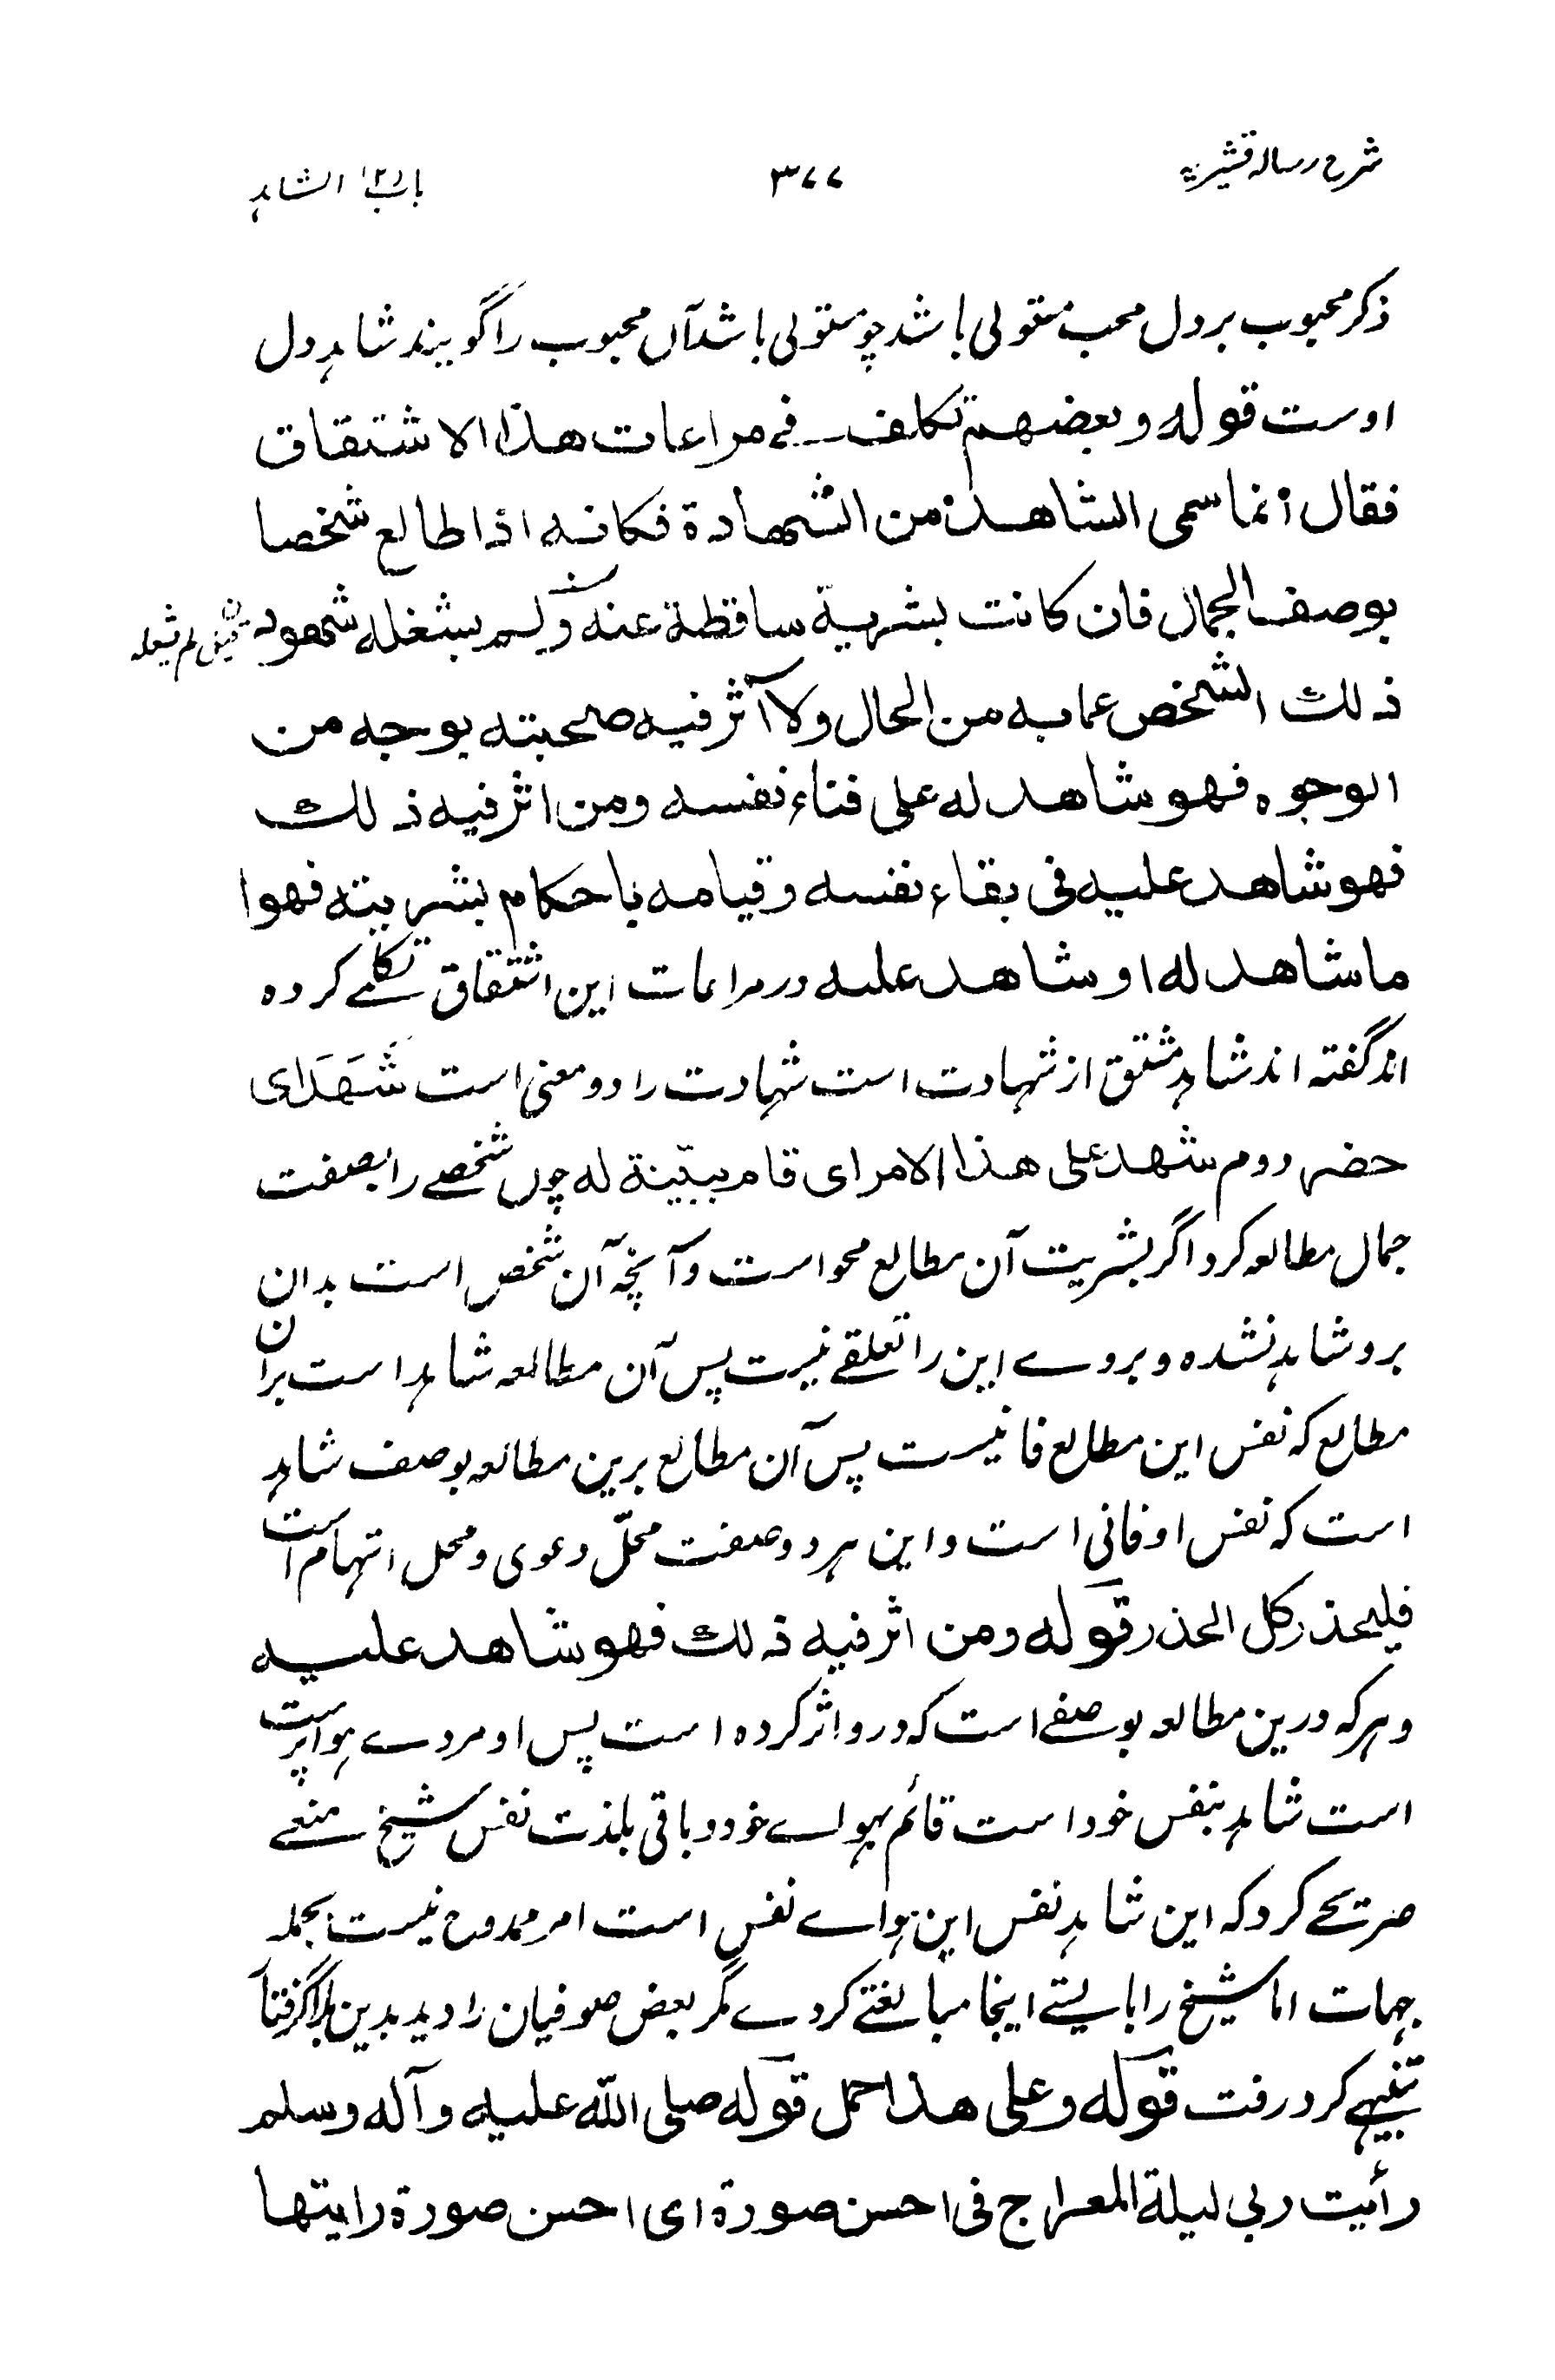 شرح رساله قشیریه
۳۷۷
باب الشاہد
ذکر محبوب بر دل محب مستولی باشد چو مستولی باشد آں محبوب را گویند شاہد دل
اوست قوله وبعضهم تكلف فے مراعات هذا الاشتقاق
فقال انما سمی الشاهد من الشهادة فكانه اذا طالع شخصا
بوصف الجمال فان كانت بشرية ساقطة عنه ولم يشغله شهود
ذلك الشخص عما به من الحال ولا آثر فيه صحبته بوجه من
الوجوه فهو شاهد له على فناء نفسه ومن اثر فيه ذلك
فهو شاهد عليه فى بقاء نفسه وقيامه باحكام بشريته فهو ا
ما شاهد له او شاهد عليه در مراعات این اشتقاق تکلفے کرده
اند گفته اند شاہد مشتق از شہادت است شہادت را دو معنی است شَهَدَ ای
حضر دوم شهد على هذا الامر ای قام ببيّنة له چوں شخصے را بصفت
جمال مطالعہ کرد اگر بشریت آن مطالع محو است و آنچہ آن شخص است بدان
برو شاہد نشده و بروے این را تعلقے نیست پس آن مطالعہ شاہد است بران
مطالع که نفس این مطالع فانیست پس آن مطالع برین مطالعہ بوصف شاہد
است که نفس او فانی است و این ہر دو صفت محلّ دعوی و محل اتہام است
فليحذر كل الحذر قوله ومن اثر فيه ذلك فهو شاهد عليه
و ہرکہ درین مطالعہ بوصفے است که درو اثر کرده است پس او مردے ہوا پرست
است شاہد بنفس خود است قائم بہواے خود و باقی بلذت نفس شیخ منعے
صریحے کرد که این شاہد نفس این ہواے نفس است امر ممدوح نیست بجملہ
جہات اما شیخ را بایستے اینجا مبالغتے کردے مگر بعض صوفیان را دید بدین بلا گرفتار
تنبیہے کرد رفت قوله وعلى هذا حمل قوله صلى الله عليه وآله وسلم
رأيت ربى ليلة المعراج فى احسن صورة اى احسن صورة رايتها